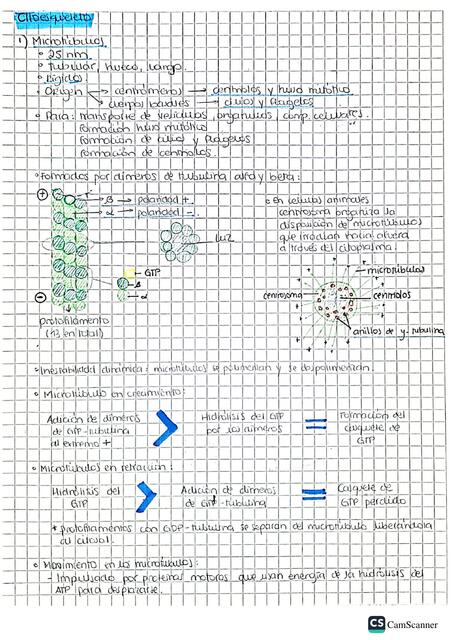 Citoesqueleto
1) Microtúbulos
• 25 nm.
• tubular, hueco, largo.
• Rígidos.
• Origen → centrómeros → centriolos y huso mitótico
→ cuerpos basales → cilios y flagelos
• Para: transporte de vesículas, organulos, comp. celulares.
Formación huso mitótico
Formación de cilios y flagelos
Formación de centriolos.
• Formados por dímeros de tubulina alfa y beta:
+
β → polaridad +.
α → polaridad -.
luz
GTP
β
α
-
protofilamento
(13 en total)
• En células animales
centrosoma organiza la
disposición de microtúbulos
que irradian hacia afuera
a través del citoplasma.
microtúbulos
centrosoma
centriolos
anillos de γ-tubulina
• Inestabilidad dinámica: microtúbulos se polimerizan y se despolimerizan.
• Microtúbulo en crecimiento:
Adición de dímeros > Hidrólisis del GTP = Formación del
de GTP-tubulina por los dímeros caquete de
al extremo + GTP
• Microtúbulos en retracción:
Hidrólisis del > Adición de dímeros = Caquete de
GTP de GTP-tubulina GTP perdido
* protofilamentos con GDP-tubulina se separan del microtúbulo liberándola
al citosol.
• Movimiento en los microtúbulos:
- Impulsado por proteínas motoras que usan energía de la hidrólisis del
ATP para desplazarse.
CS CamScanner